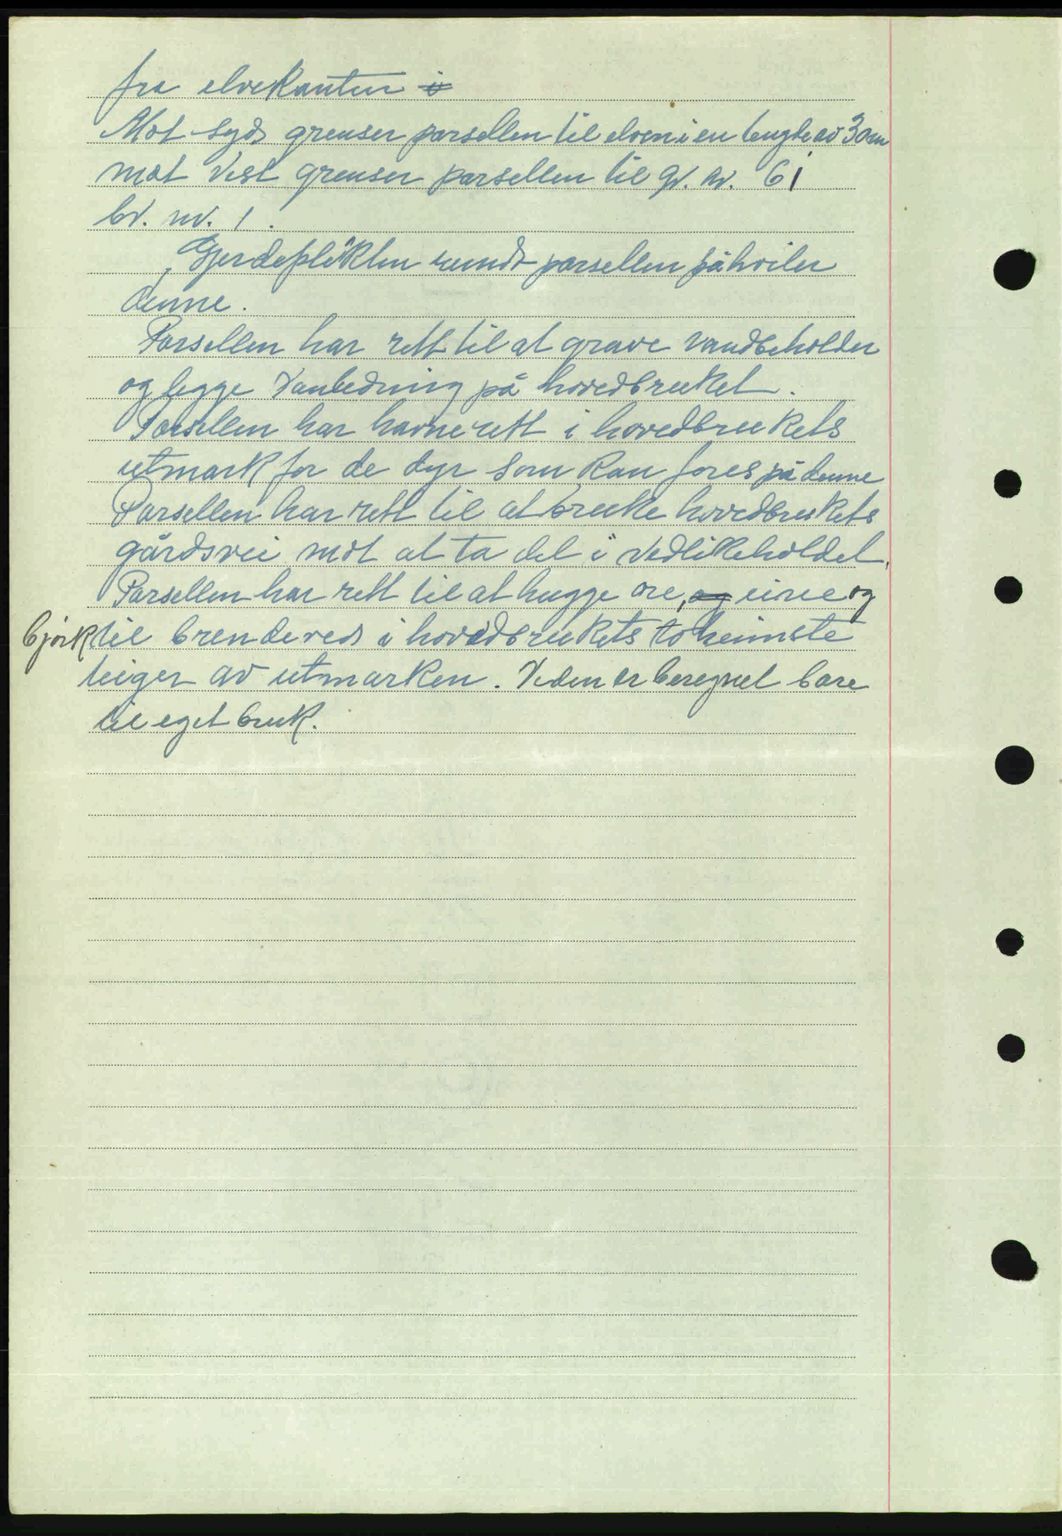 fra elvekanten i
Mot syd grenser parsellen til elven i en lengde av 30 m
mot Vest grenser parsellen til gr. nr. 61
br. nr. 1.
Gjerdeplikten rundt parsellen påhviler
denne.
Parsellen har rett til at grave vandbeholder
og legge Vanledning på hovedbruket.
Parsellen har havnerett i hovedbrukets
utmark for de dyr som kan fores på denne
Parsellen har rett til at bruke hovedbrukets
gårdsvei mot at ta del i vedlikeholdet.
Parsellen har rett til at hugge ore, og einer og
bjørk til brendeved i hovedbrukets to heimste
teiger av utmarken. Veden er beregnet bare
til eget bruk.